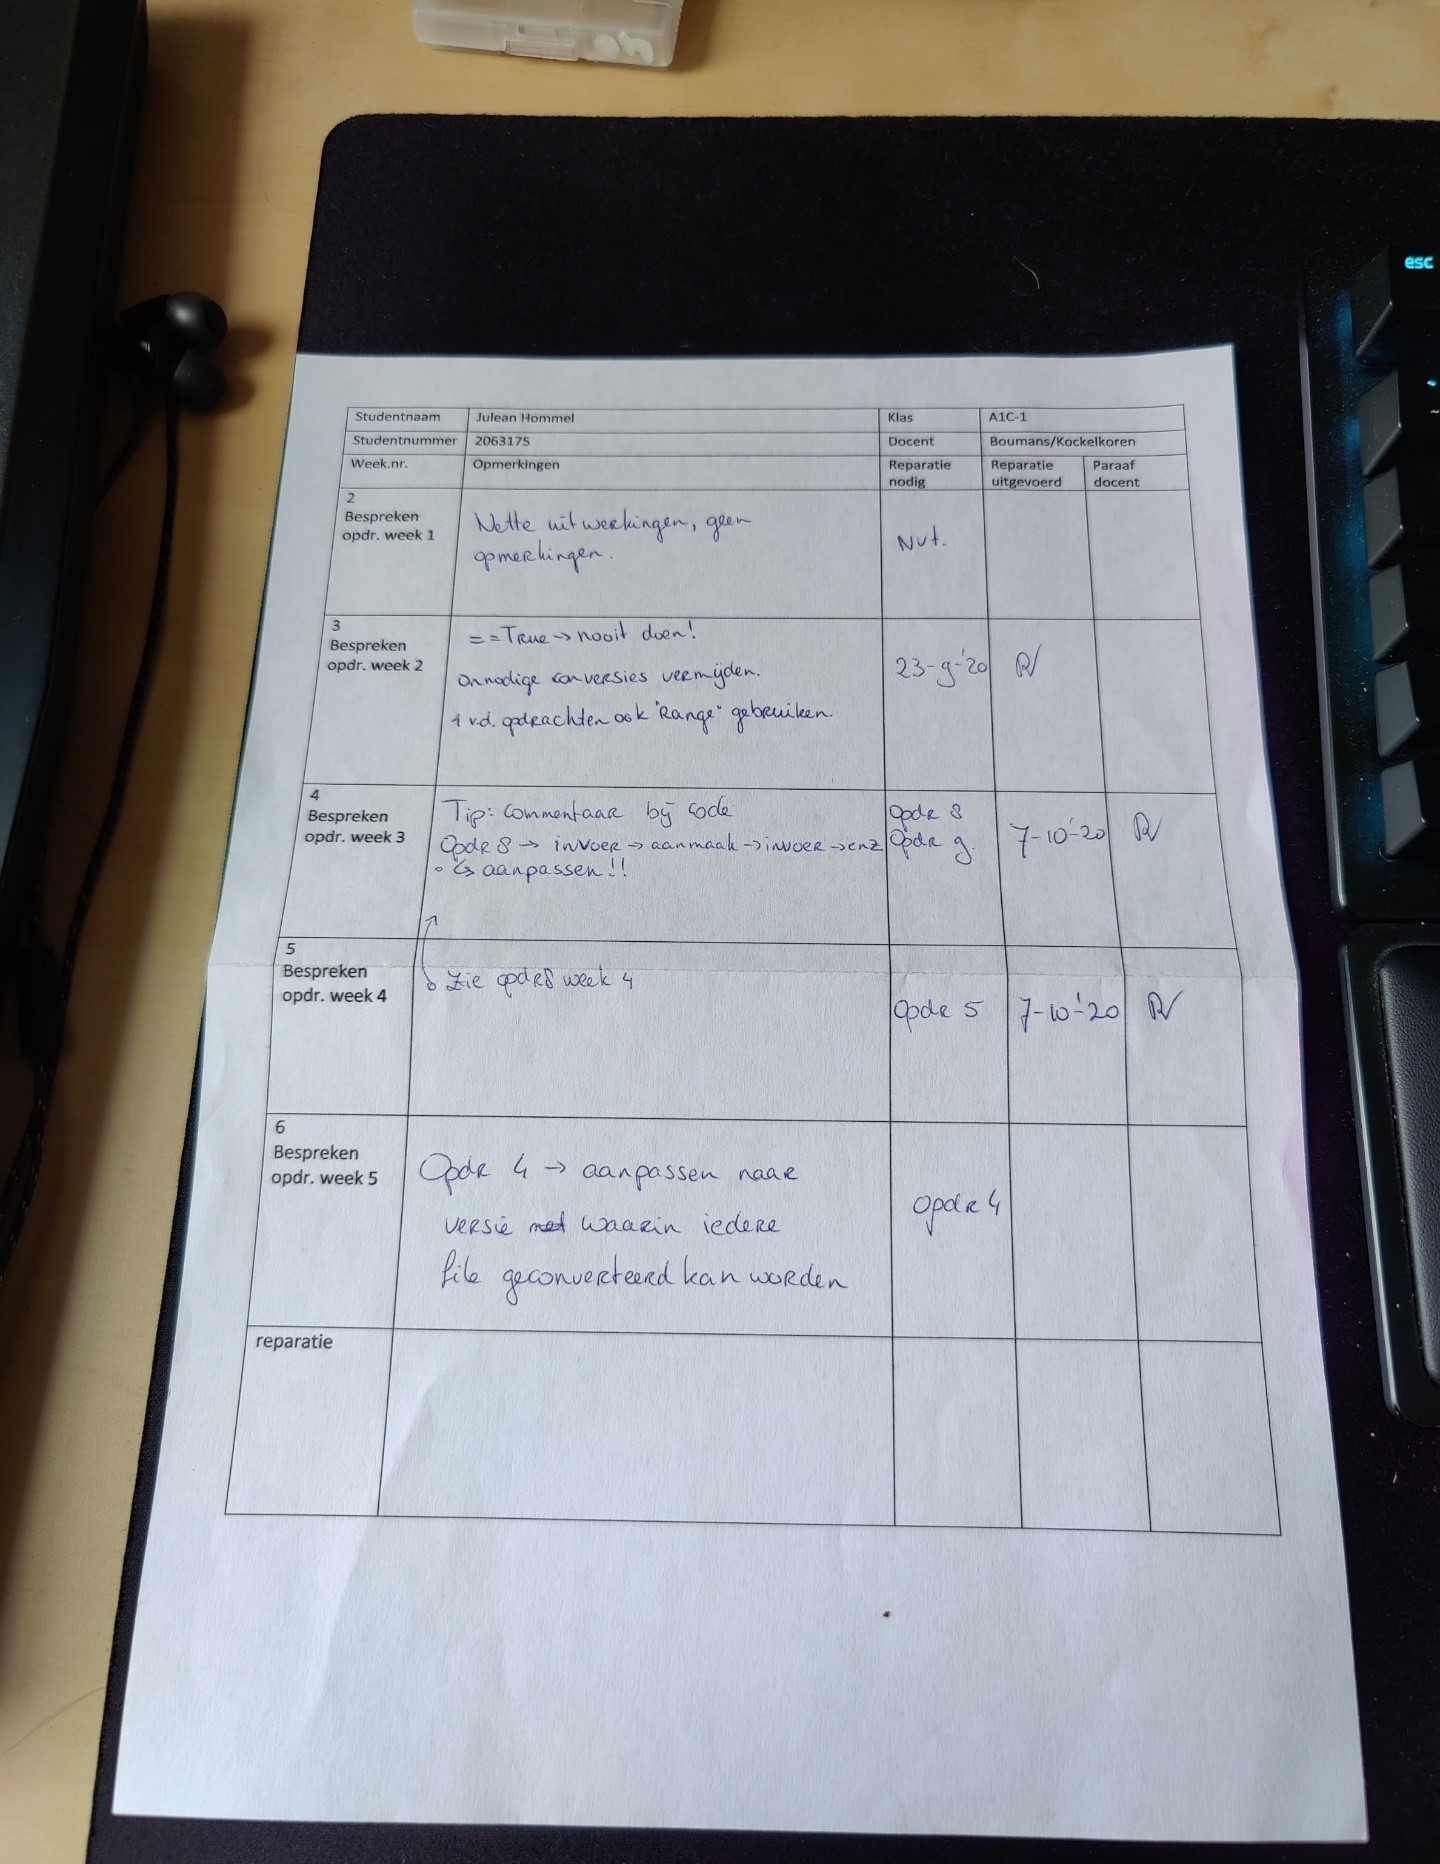 esc
Studentnaam Julean Hommel Klas A1C-1
Studentnummer 2063175 Docent Boumans/Kockelkoren
Week.nr. Opmerkingen Reparatie nodig Reparatie uitgevoerd Paraaf docent
2
Bespreken
opdr. week 1
Nette uitwerkingen, geen
opmerkingen.
Nvt.
3
Bespreken
opdr. week 2
==True→nooit doen!
onnodige conversies vermijden.
1 v.d. opdrachten ook "Range" gebruiken.
23-9-'20
4
Bespreken
opdr. week 3
Tip: commentaar bij code
Opdr 8 → invoer → aanmaak → invoer → enz
↳ aanpassen!!
Opdr 8
Opdr 9.
7-10-'20
5
Bespreken
opdr. week 4
Zie opdr8 week 4
Opdr 5
7-10-'20
6
Bespreken
opdr. week 5
Opdr 4 → aanpassen naar
versie met waarin iedere
file geconverteerd kan worden
Opdr 4
reparatie